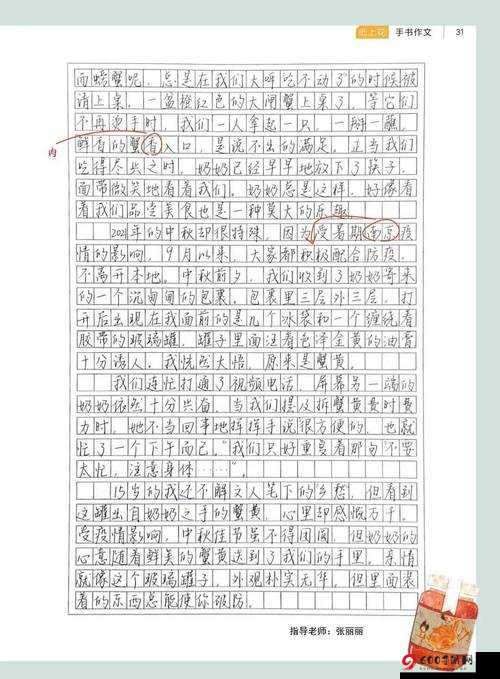 纸上花 手书作文 31
而螃蟹呢,总是在我们大呼吃不动了的时候被
请上桌。一盘橙红色的大闸蟹上桌了,等它们
不再烫手时,我们一人拿起一只,一掰一蘸,
鲜香的蟹香入口,是说不出的满足。正当我们
肉
吃得尽兴之时,奶奶已经早早地放下了筷子,
面带微笑地看着我们。奶奶总是这样,好像看
着我们品尝美食也是一种莫大的乐趣。
2021年的中秋却很特殊,因为受暑期南京疫
情的影响,9月以来,大家都积极配合防疫,
不离开本地。中秋前夕,我们收到了奶奶寄来
的一个沉甸甸的包裹。包裹里三层外三层,打
开后出现在我面前的是几个冰袋和一个缠绕着
胶带的玻璃罐,罐子里面泛着色泽金黄的油膏
十分诱人。我恍然大悟,原来是蟹黄。
我们连忙打通了视频电话,屏幕另一端的
奶奶依然十分兴奋,当我们提及拆蟹黄费时费
力时,她不当回事地挥挥手说很方便的,也就
忙了一个下午而已。“我们只好重复着那句“不要
太忙,注意身体……”
15岁的我还不解文人笔下的乡愁,但看到
这罐出自奶奶之手的蟹黄,心里却感慨万千。
受疫情影响,中秋佳节虽不得团圆,但奶奶的
心意随着鲜美的蟹黄送到了我们的手里。亲情
就像这个玻璃罐子,外观朴实无华,但里面装
着的东西总能使你破防。
指导老师:张丽丽